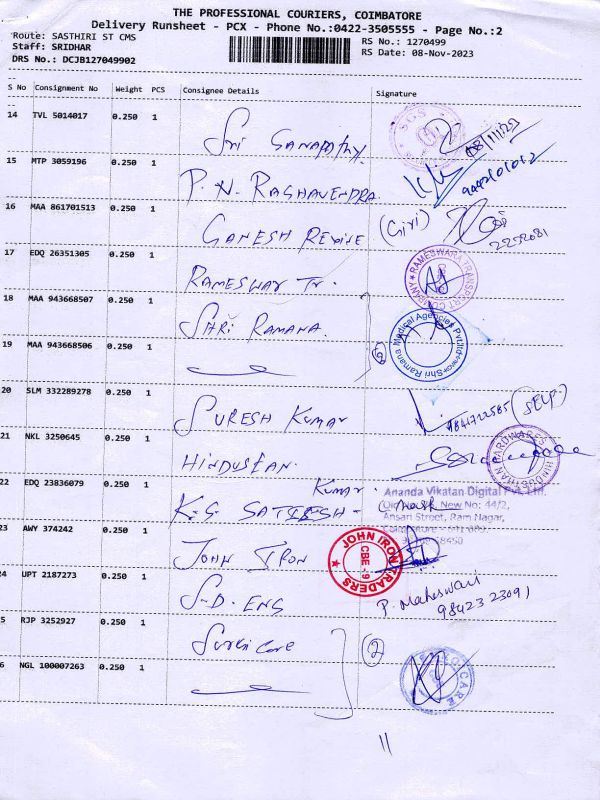 THE PROFESSIONAL COURIERS, COIMBATORE
Delivery Runsheet - PCX - Phone No.:0422-3505555 - Page No.:2
Route: SASTHIRI ST CMS
Staff: SRIDHAR
DRS No.: DCJB127049902
RS No.: 1270499
RS Date: 08-Nov-2023
S No Consignment No Weight PCS Consignee Details Signature
14 TVL 5014017 0.250 1 Sri GANAPATHY 08/11/23
15 MTP 3059196 0.250 1 P. N. RAGHAVENDRA
16 MAA 861701513 0.250 1 GANESH (Giri)
17 EDQ 26351305 0.250 1 RAMESWAR Tr. RAMESWARA TRANSPORT COMPANY
18 MAA 943668507 0.250 1 SHRI RAMANA Shri Ramana Medical Agencies Pvt Ltd
19 MAA 943668506 0.250 1
20 SLM 332289278 0.250 1 SURESH KUMAR (SELF)
21 NKL 3250645 0.250 1 HINDUSTAN HINDUSTHAN HARDWARES
22 EDQ 23836079 0.250 1 K.G. SATEESH- Kumar
Ananda Vikatan Digital Pvt. Ltd.
New No: 44/2,
Ansari Street, Ram Nagar,
23 AWY 374242 0.250 1 JOHN IRON JOHN IRON TRADERS CBE - 9
24 UPT 2187273 0.250 1 S.D. ENG P. Maheswari
98423 23091
5 RJP 3252927 0.250 1 Surgi Care (2)
6 NGL 100007263 0.250 1
11